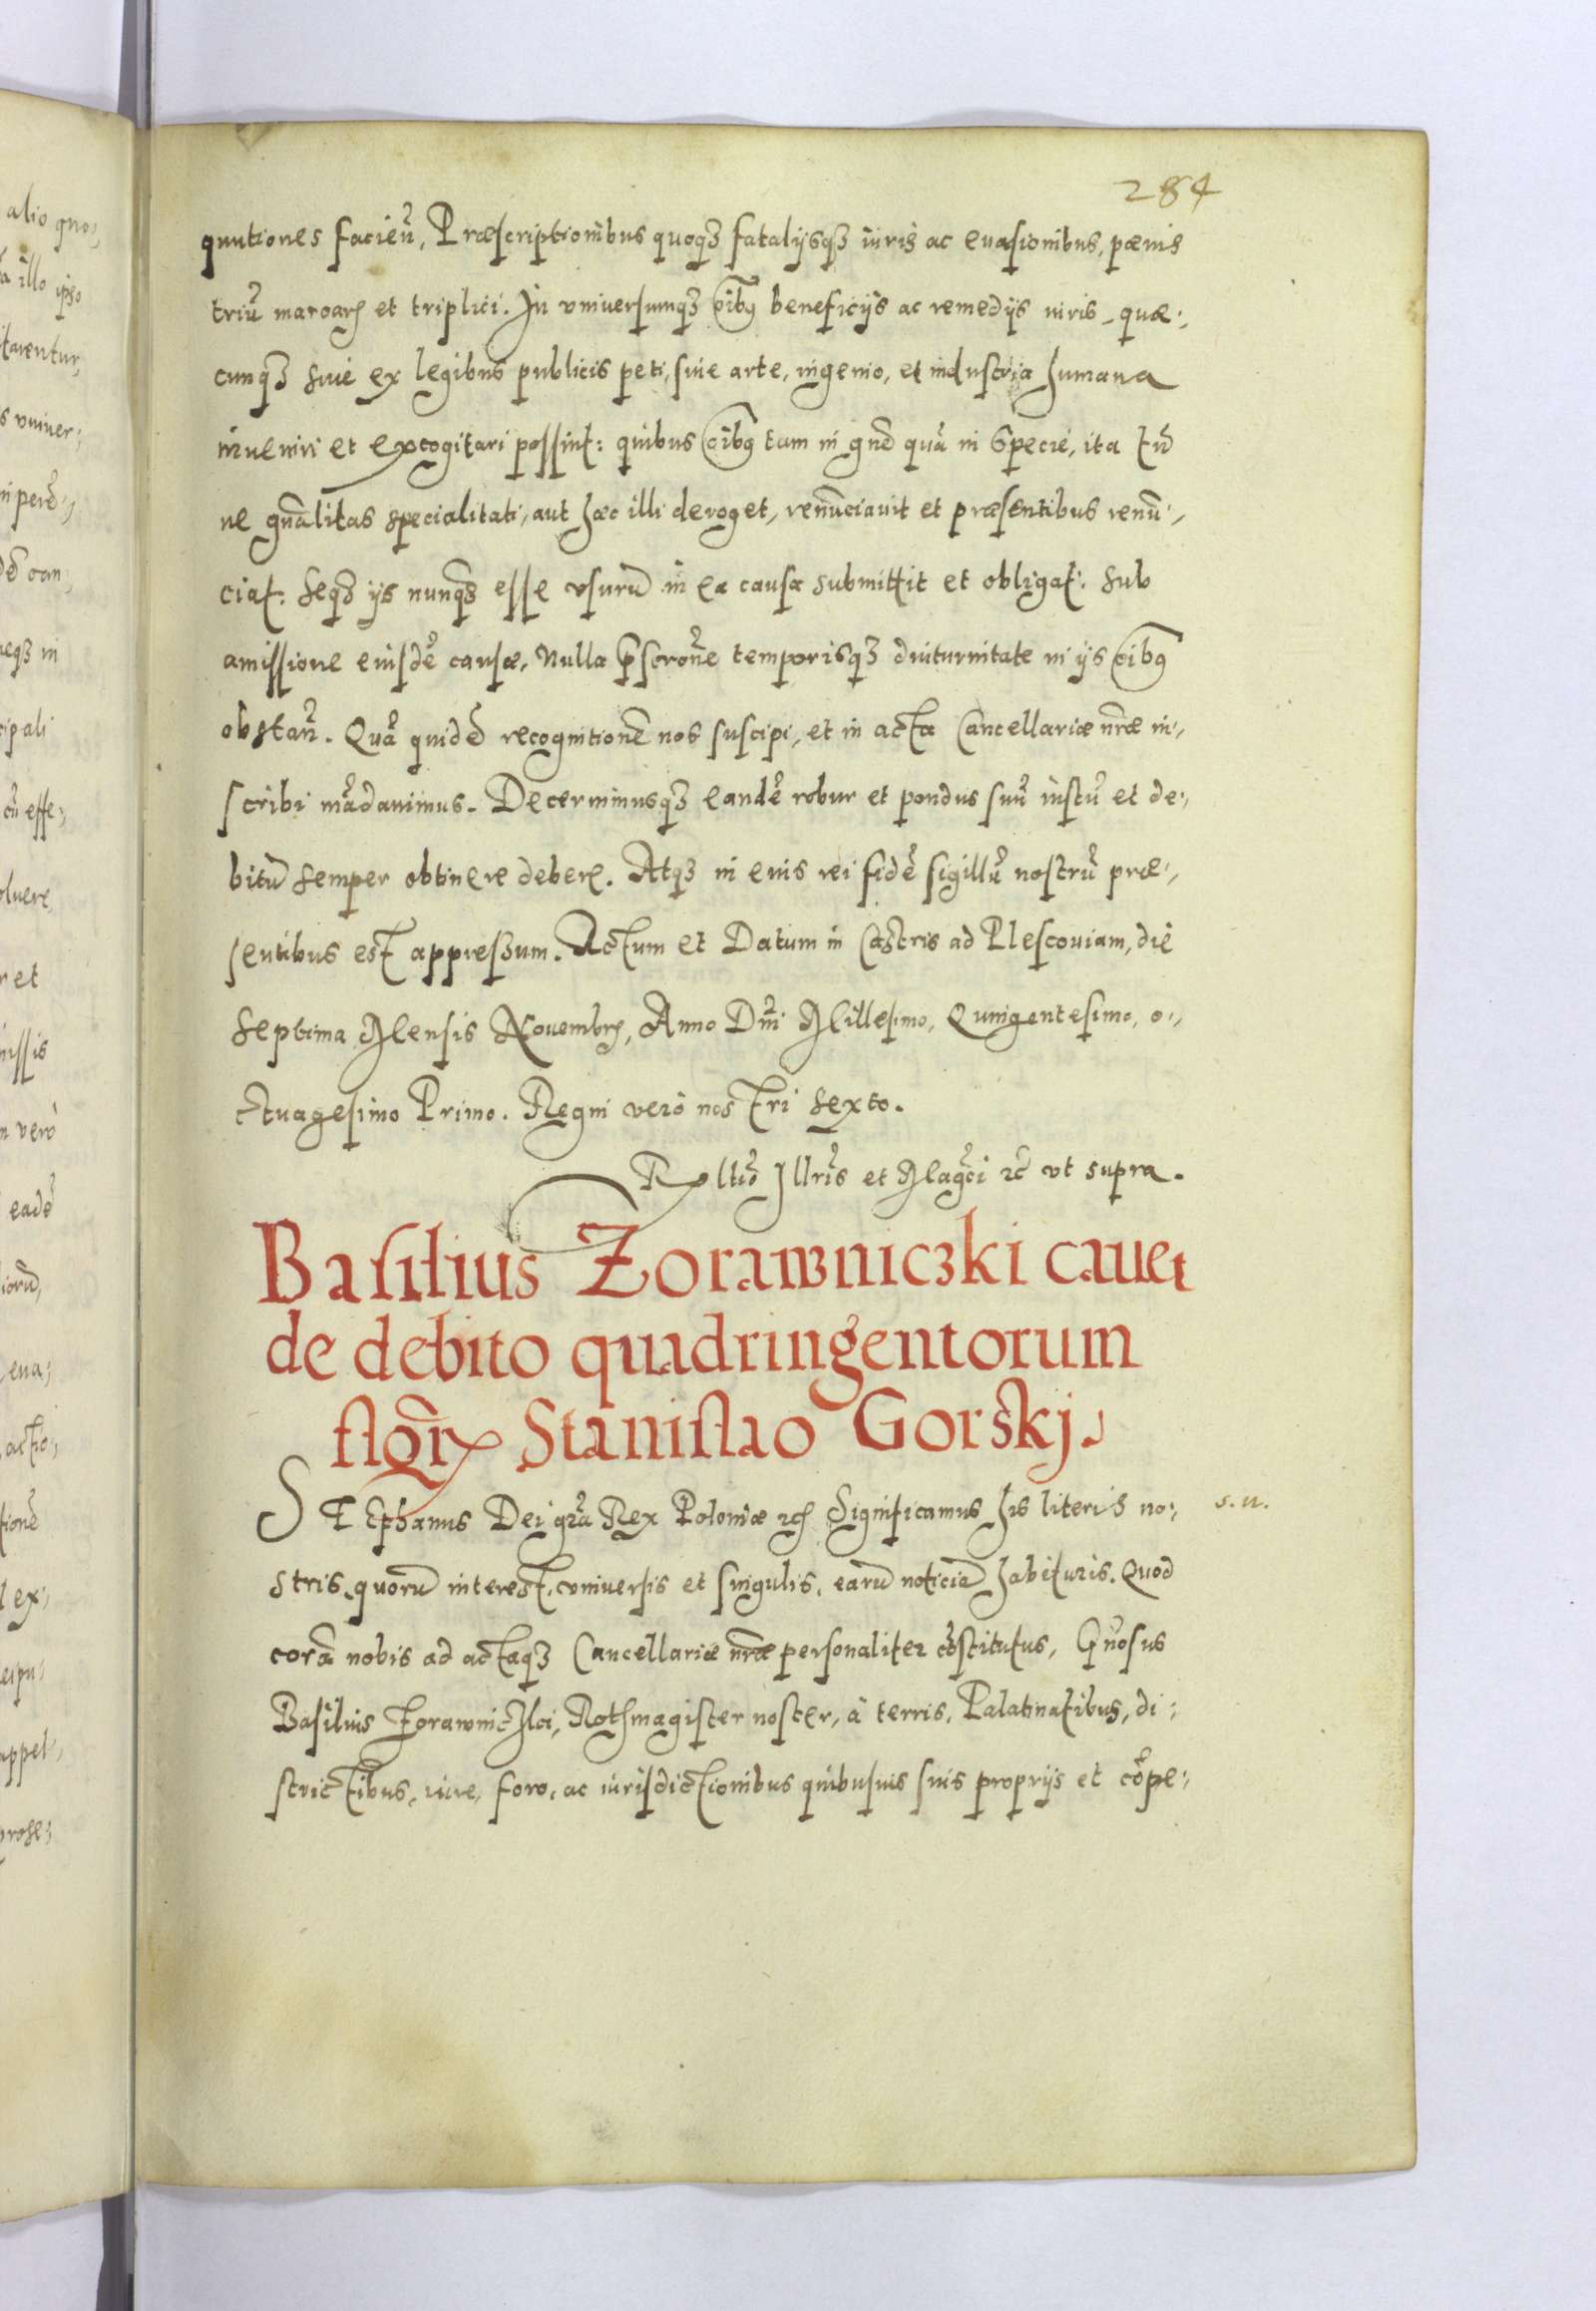 284
quutiones facień, Præscriptionibus quoqꝫ fatalijsqꝫ iuris ac euasionibus, pænis
triũ marcarꝫ et triplici. In vniuersumqꝫ oı̃bꝯ beneficijs ac remedijs iuris, quæ⸗
cunqꝫ siue ex legibus publicis peti, siue arte, ingenio, et industria humana
inueniri et excogitari possint: quibus oı̃bꝯ tam in gñe quã in Specie, ita tñ
ne gñalitas specialitati, aut hæc illi deroget, renũciauit et præsentibus renũ⸗
ciat. Seqꝫ ijs nunqꝫ esse vsurũ in ea causa submittit et obligat. Sub
amissione eiusdẽ causæ, Nulla p̃scrone temporisqꝫ diuturnitate in ijs oı̃bꝯ
obstañ. Quã quidẽ recognitionẽ nos suscipi, et in acta Cancellariæ nr̃æ in⸗
scribi mãdauimus. Decernimusqꝫ eandẽ robur et pondus suũ iustũ et de⸗
bitũ semper obtinere debere. Atqꝫ in euis rei fidẽ sigillũ nostrũ præ⸗
sentibus est appressum. Actum et Datum in Castris ad Plescouiam, die
Septima Mensis Nouembrꝫ, Anno Dñi Millesimo, Quingentesimo, o⸗
ctuagesimo Primo. Regni vero nostri sexto.
Rltio Illris et Magci ꝛc̃ vt supra.
Basilius Zorawniczki cauet
de debito quadringentorum
flõrꝫ Stanislao Gorskj.
STEphanus Dei gr̃a Rex Poloniæ ꝛcꝫ Significamus his literis no⸗
s. n.
stris, quorũ interest, vniuersis et singulis, earũ noticiã habituris. Quod
corã nobis ad actaqꝫ Cancellariæ nr̃æ personaliter cõstitutus, Gñosus
Basilius Zorawnic Rothmagister noster, à terris, Palatinatibus, di⸗
strictibus, iure, foro, ac iurisdictionibus quibusuis suis proprijs et cõpe⸗